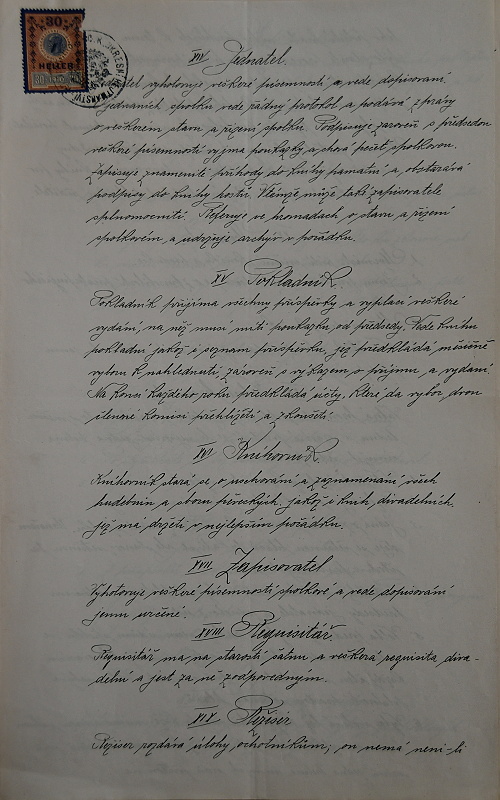 30
HELLER
XIV Jednatel.
Jednatel vyhotovuje veškeré písemnosti a vede dopisování
o jednáních spolku vede řádný protokol a podává zprávy
o veškerém stavu a řízení spolku. Podpisuje zároveň s předsedou
veškeré písemnosti vyjma poukázky a chová pečeť spolkovou.
Zapisuje znamenité příhody do knihy památní a obstarává
podpisy do knihy hostů. Všemže může také zapisovatele
splnomocniti. Referuje ve hromadách o stavu a řízení
spolkovém, a udržuje archiv v pořádku.
XV Pokladník.
Pokladník přijímá všechny příspěvky a vyplácí veškeré
vydání, na něž musí míti poukázku od předsedy. Vede knihu
pokladní jakož i seznam příspěvků, jež předkládá měsíčně
výboru k nahlédnutí, zároveň s výkazem o příjmu a vydání.
Na konci každého roku předkládá účty, které dá výbor dvou
členné komisi přehlížeti a zkoušeti.
XVI Knihovník.
Knihovník stará se o uschování a zaznamenání všech
hudebnin a sborů pěveckých, jakož i knih divadelních,
jež má držeti v nejlepším pořádku.
XVII Zapisovatel
Vyhotovuje veškeré písemnosti spolkové a vede dopisování
jemu určené.
XVIII Requisitář.
Requisitář má na starosti šatnu a veškerá requisita diva-
delní a jest za ně zodpovědným.
XIX Režisér
Režisér rozdává úlohy ochotníkům; on nemá není-li